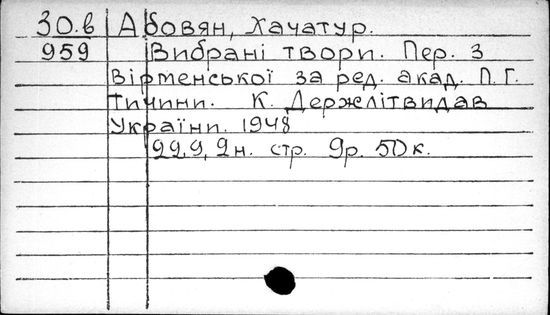 30.в Абовян, Хачатур.
959 Вибрані твори. Пер. з
Вірменської за ред. акад. П. Г.
Тичини. К. Держлітвидав
України. 1948
229, 2н. стр. 9р. 50к.